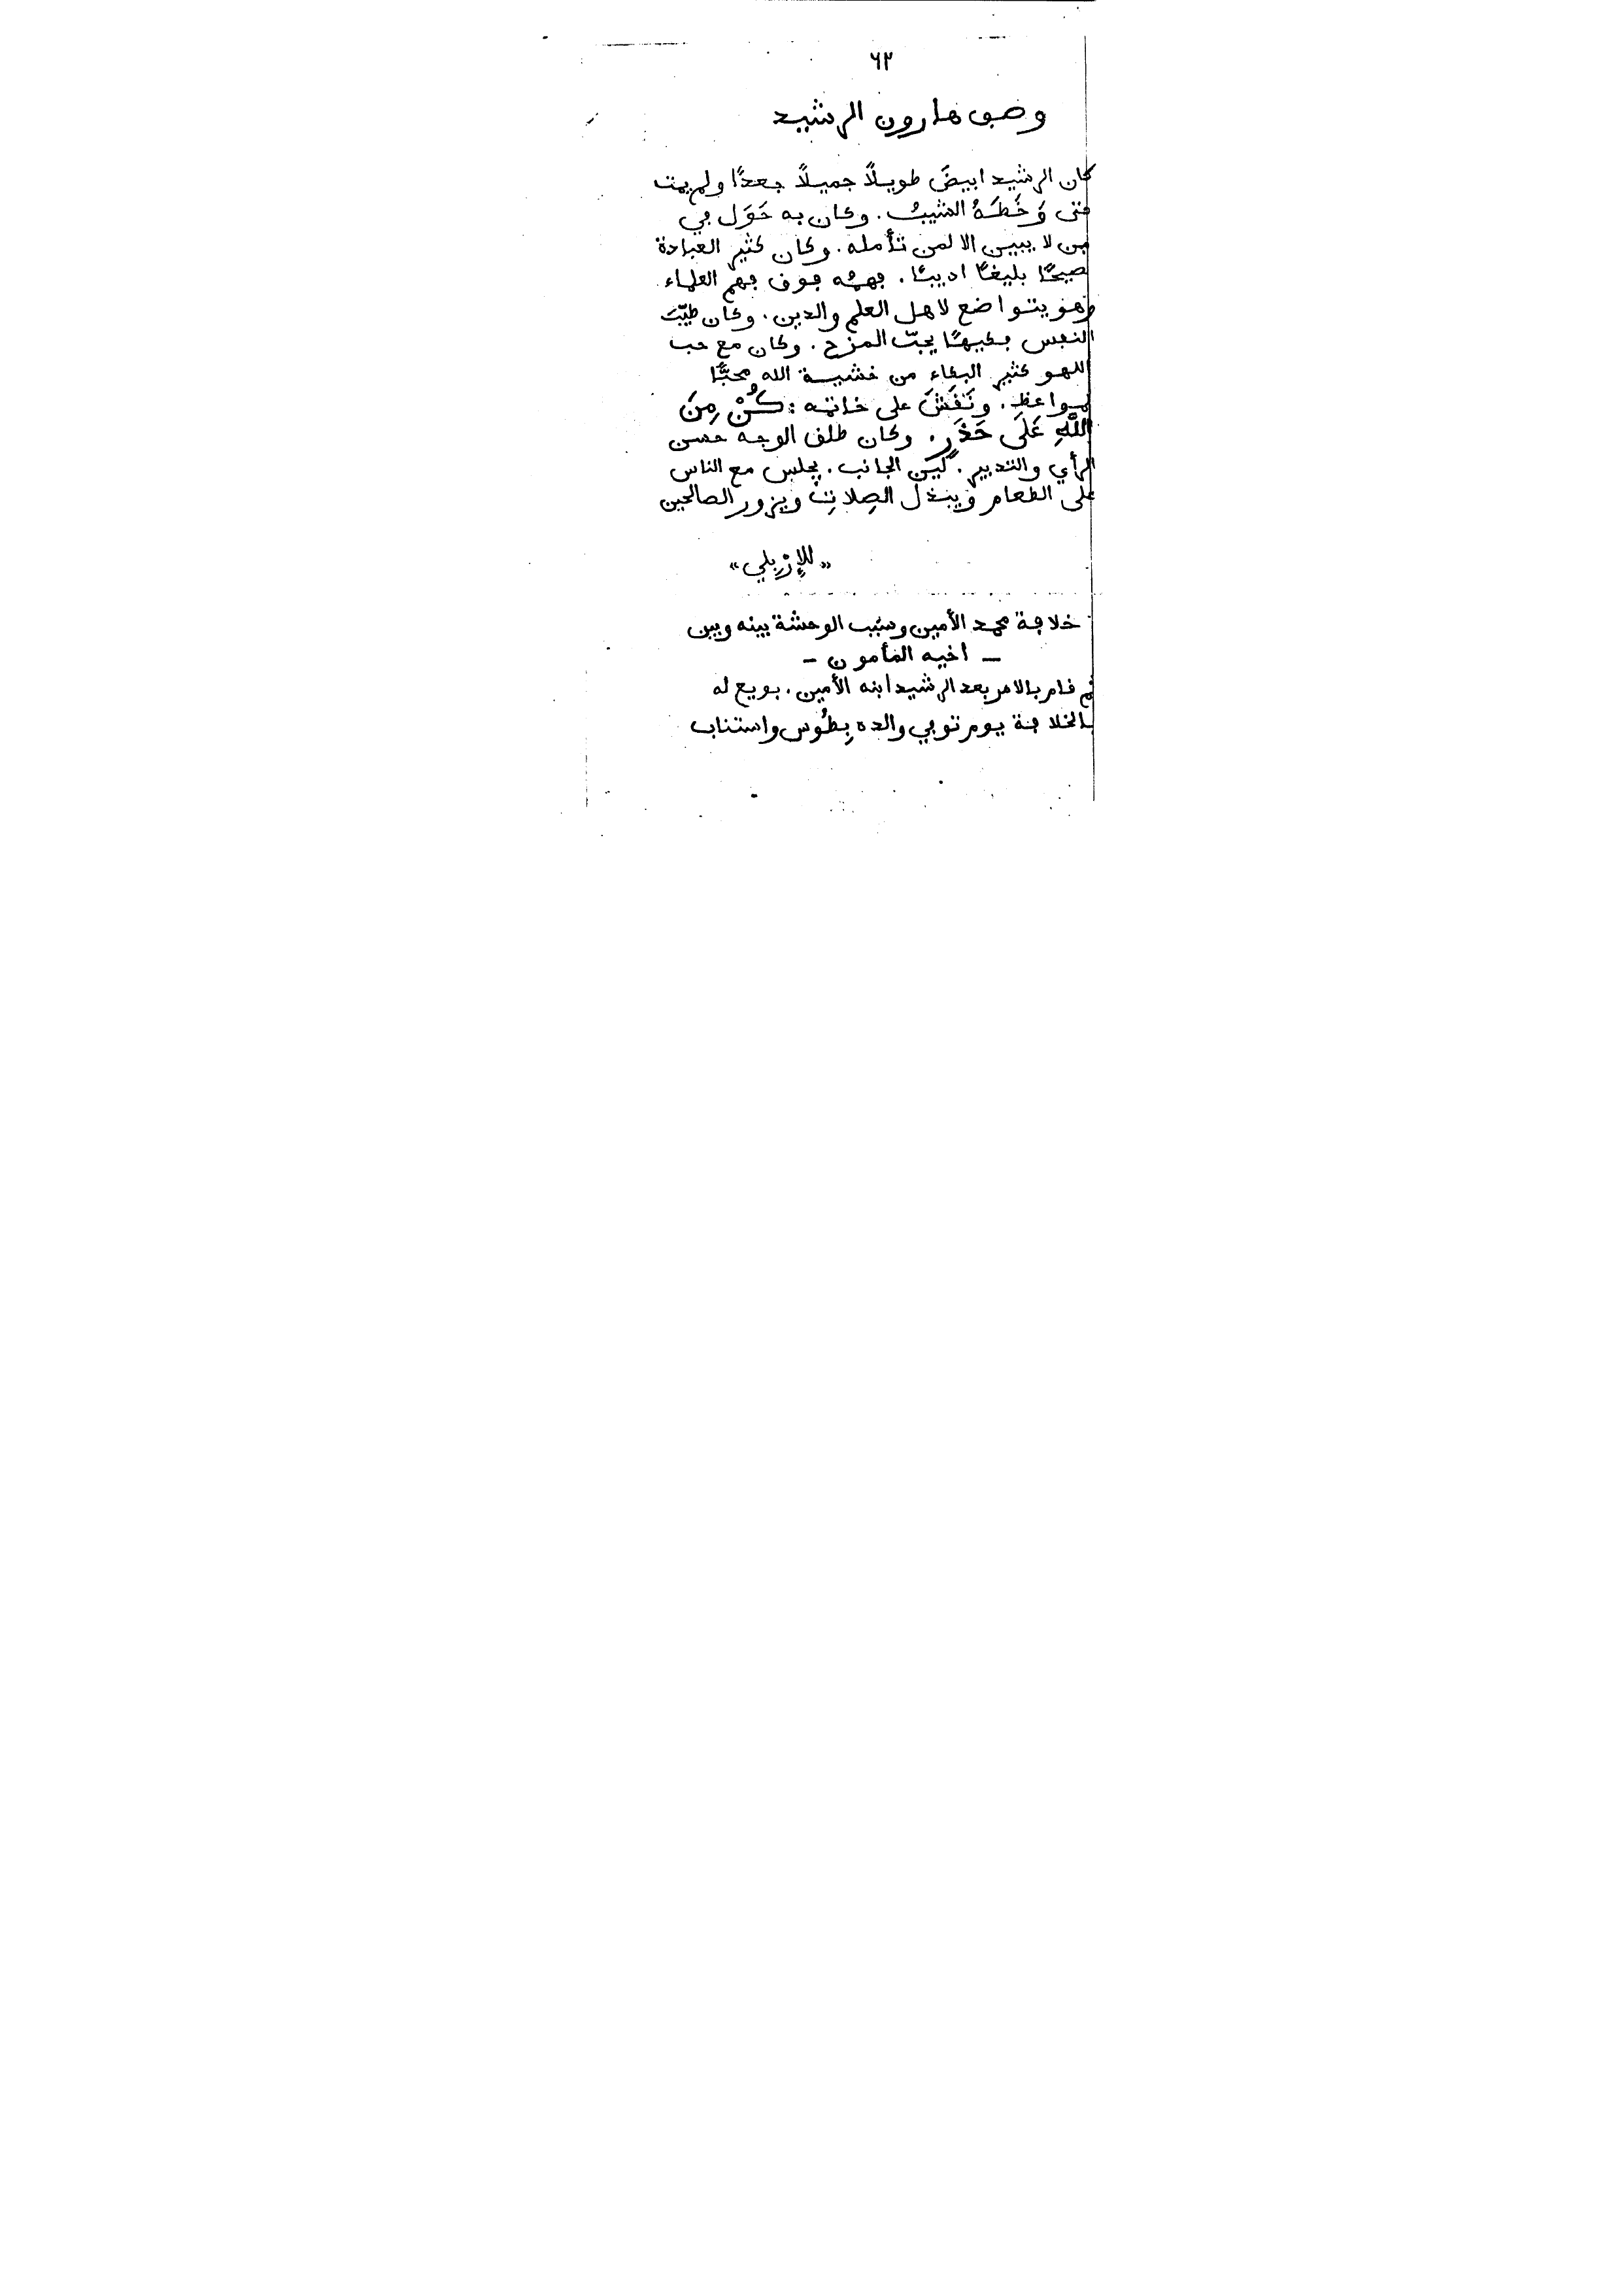 ٦٣
وصف هارون الرشيد
كان الرشيد ابيضَ طويلاً جميلاً جعدًا ولم يمت
حتى وَخَطَهُ الشيبُ. وكان به حَوَل في
عين لا يبين الا لمن تأمله. وكان كثير العبادة
فصيحًا بليغًا اديبًا. فهمُه فوق فهم العلماء
وهو يتواضع لاهل العلم والدين. وكان طيّبَ
النفس فكيهًا يحبّ المزح. وكان مع حب
اللهو كثير البكاء من خشية الله محبًّا
للمواعظِ. ونَقَشَ على خاتمه: كُنْ مِنَ
اللَّهِ عَلَى حَذَرٍ. وكان طلق الوجه حسن
الرأي والتدبير. لَيّن الجانب. يجلس مع الناس
على الطعام ويبذل الصِلاتِ ويزور الصالحين
«للإرْبِلي»
خلافة محمد الأمين وسبب الوحشة بينه وبين
– أخيه المأمون –
ثم قام بالامر بعد الرشيد ابنه الأمين. بويع له
بالخلافة يوم توفي والده بِطُوس واستناب